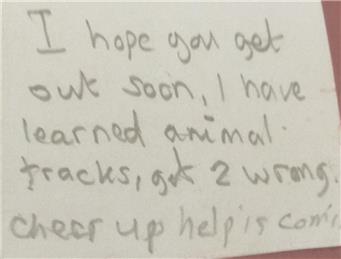 I hope you get
out soon, I have
learned animal
tracks, got 2 wrong.
cheer up help is comi